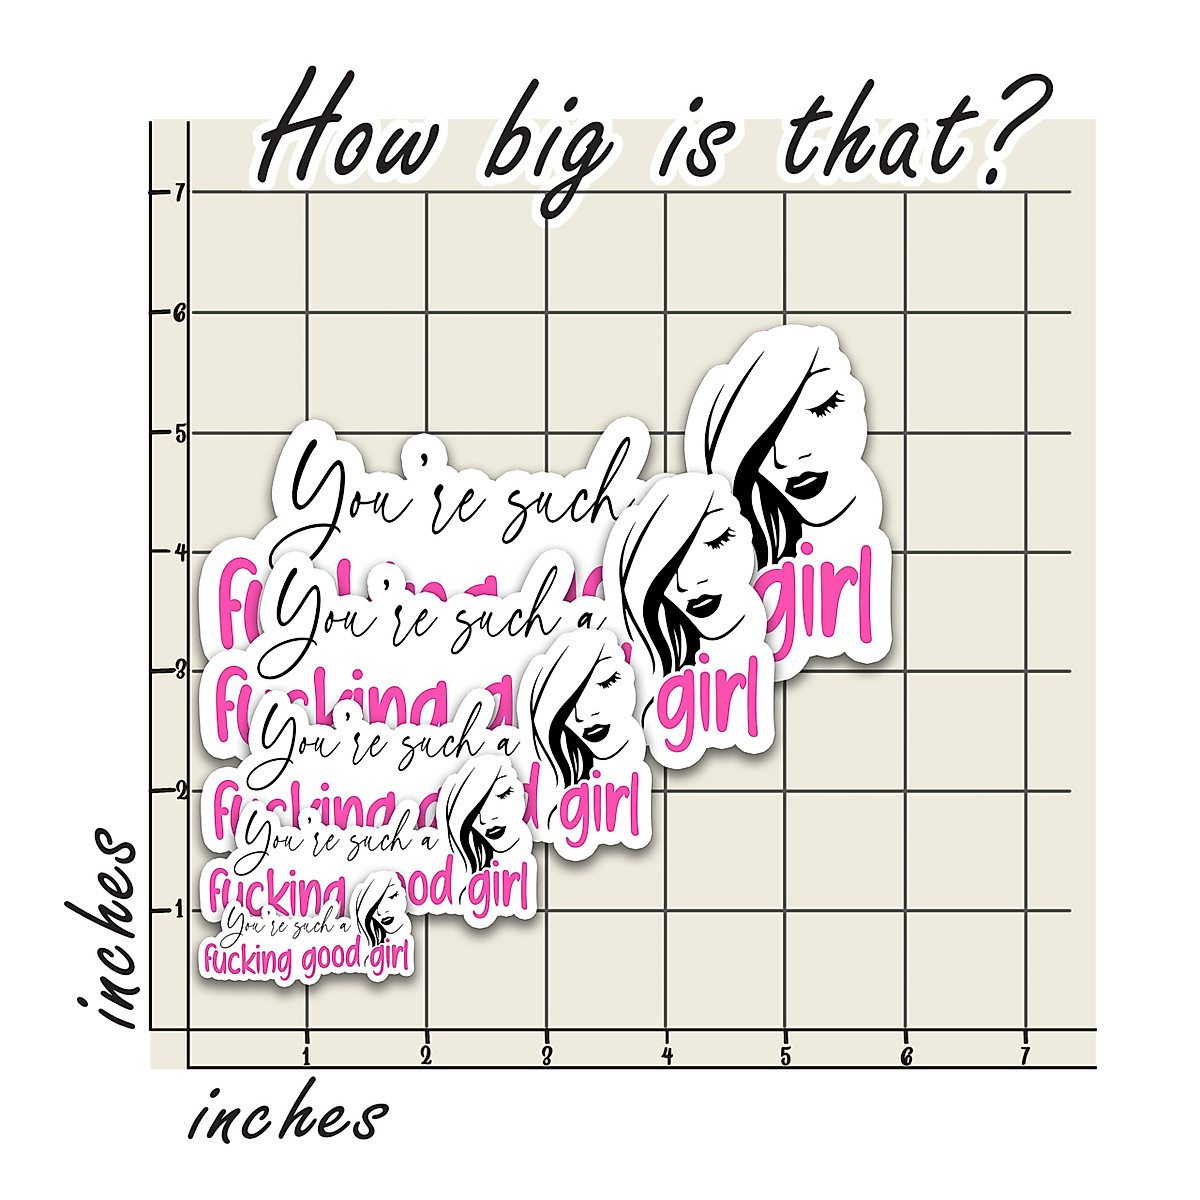 How big is that?
7
6
5
4
3
2
1
You're such
girl
You're such a
fucking
girl
You're such a
fucking good girl
You're such a
fucking good girl
You're such a
fucking good girl
inches
1 2 3 4 5 6 7
inches